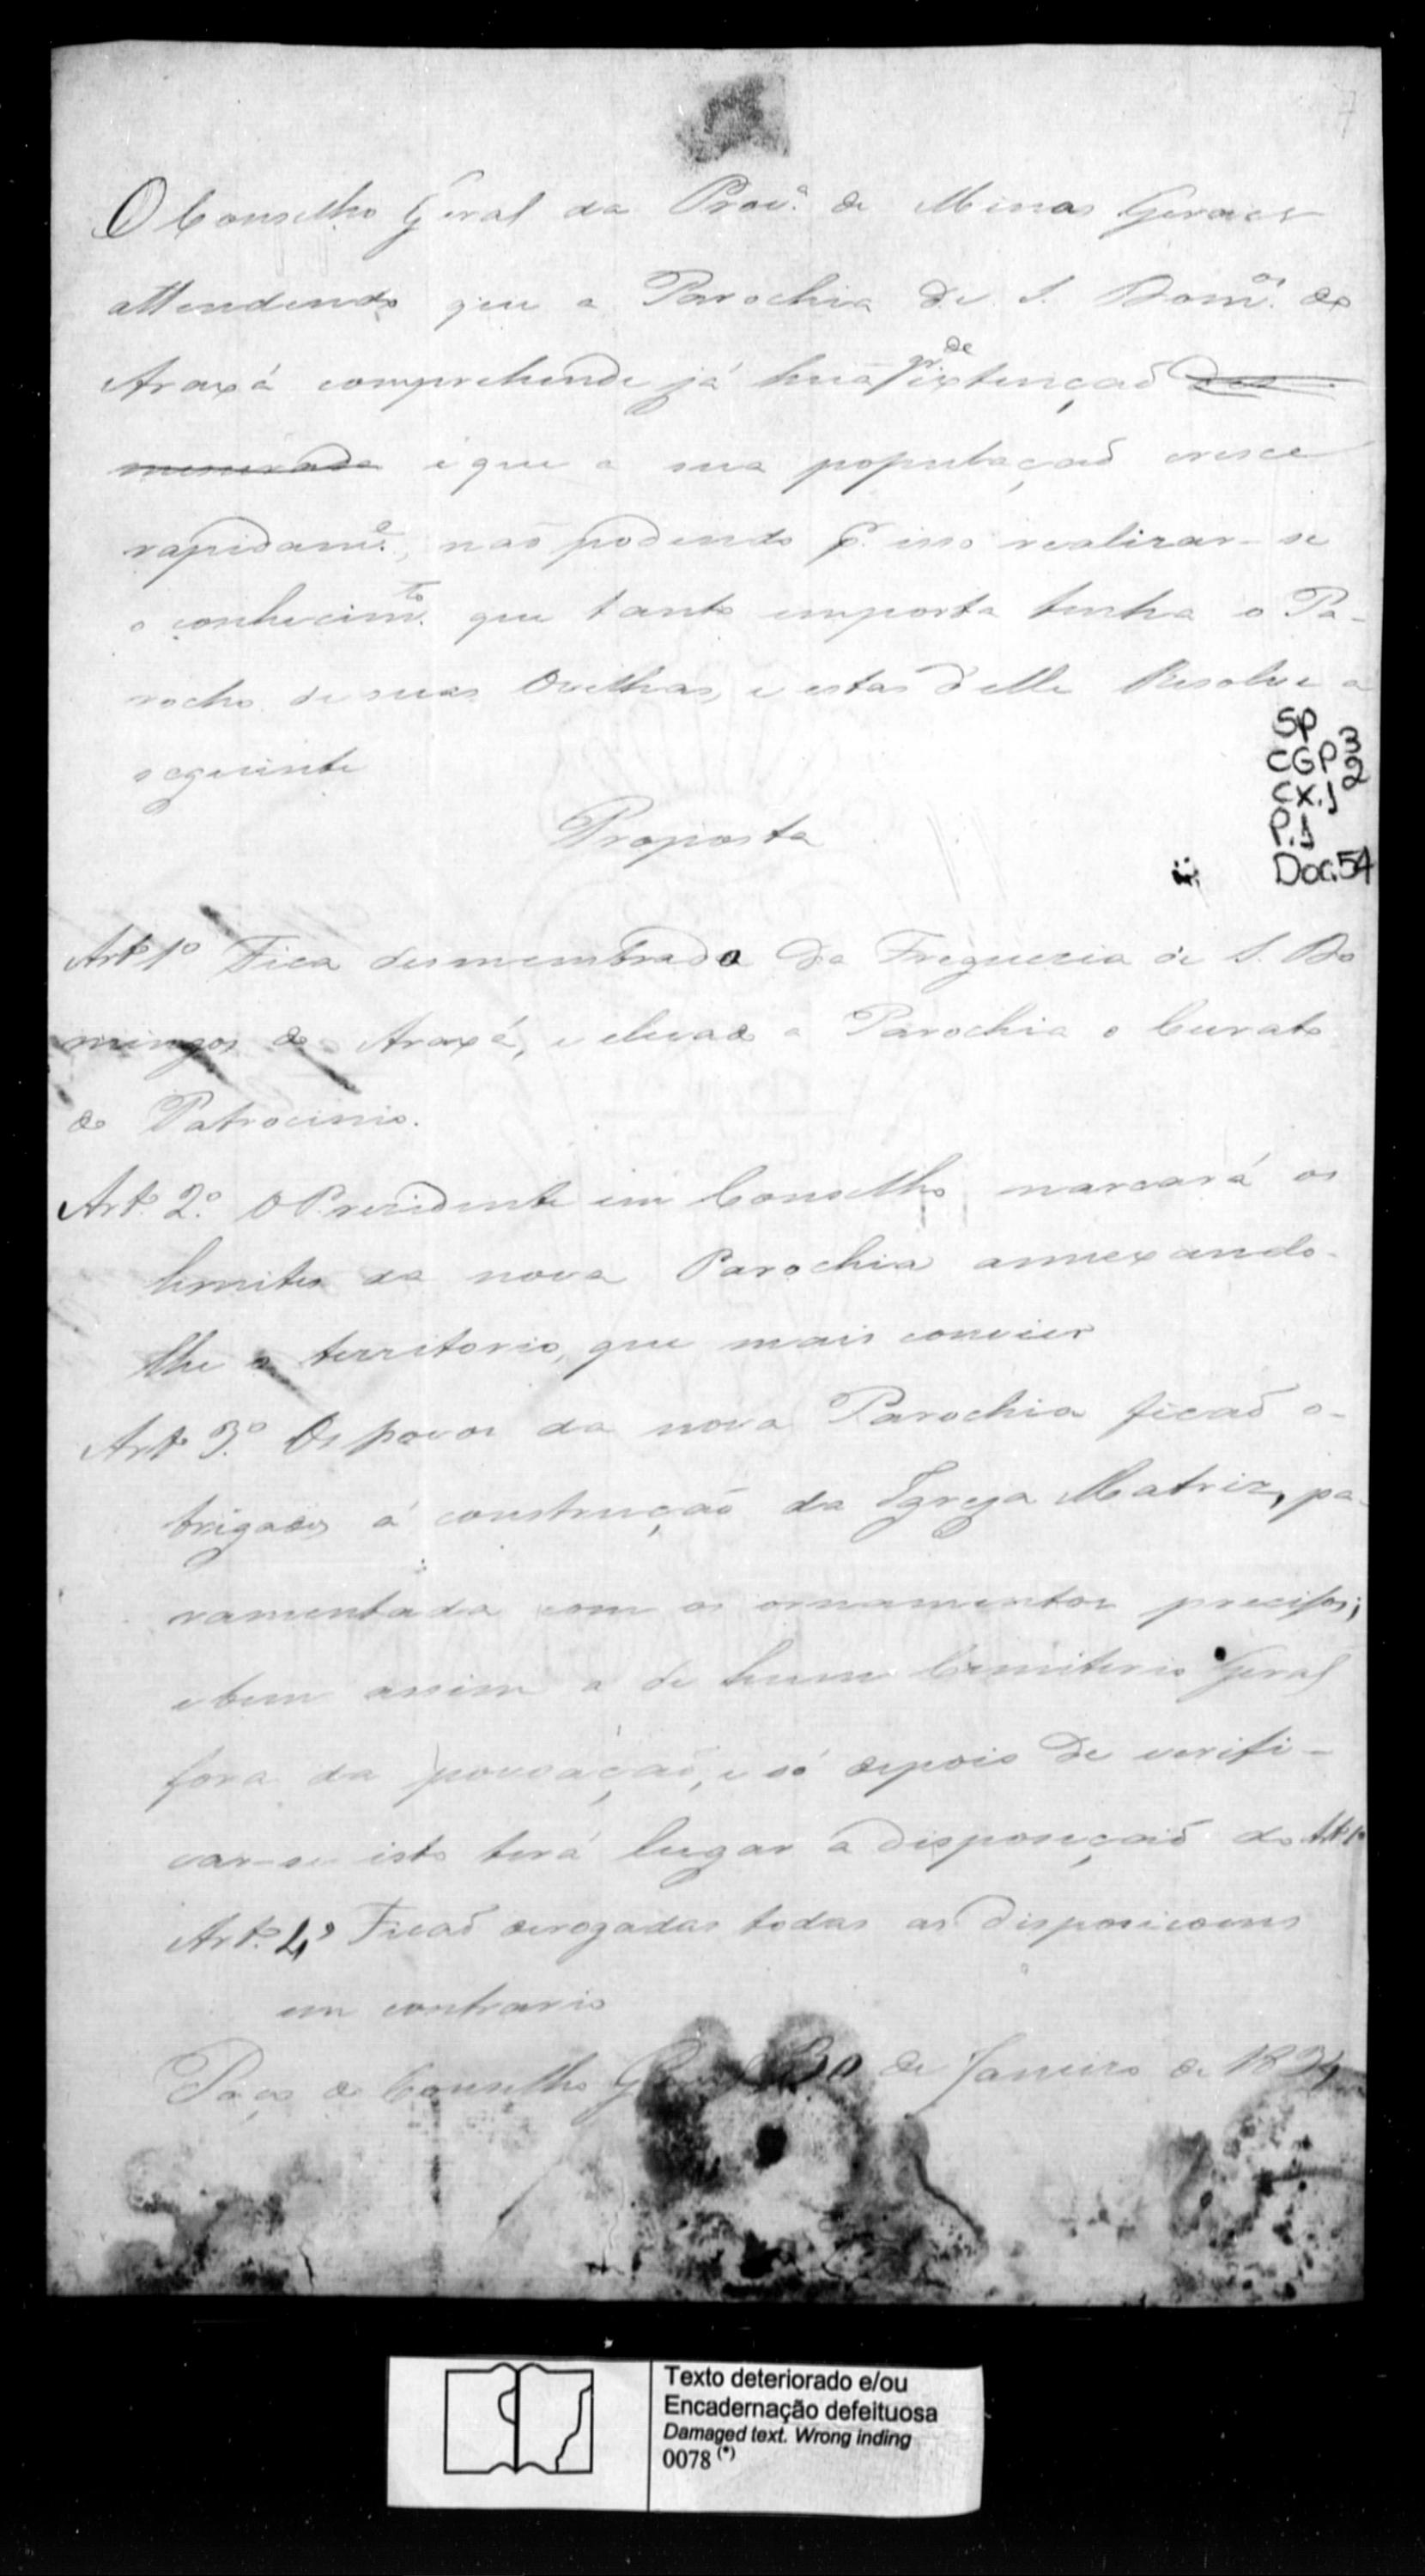 7
O Conselho Geral da Prov.ª de Minas Geraes
attendendo que a Parochia de S. Dom.os do
Araxá comprehende já huã gr.de extençaõ des
mesurada e que a sua populaçaõ cresce
rapidam.e, naõ podendo p.r isso realizar-se
o conhecim.to que tanto emporta tenha o Pa-
rocho de suas Ovelhas, e estas d'elle Resolve a
seguinte
Proposta
SP
CGP 3
CX.1 2
P.1
Doc.54
Art.º 1º Fica desmembrado da Freguesia de S. Do
mingos do Araxá, e elevado a Parochia o Curato
do Patrocinio.
Art.º 2.º O Presidente em Conselho marcará os
lemites da nova Parochia annexando-
lhe o territorio, que mais convier
Art.º 3.º Os povos da nova Parochia ficaõ o-
brigados á construçaõ da Igreja Matriz, pa-
ramentada com os ornamentos precisos;
e bem assim a de hum Cemiterio Geral
fora da povoaçaõ, e só depois de verifi-
car-se isto terá lugar a disposiçaõ do Art.º 1º
Art.º 4º Ficaõ derogadas todas as disposicoens
em contrario
Paço do Conselho Geral 30 de Janeiro de 1834
Texto deteriorado e/ou
Encadernação defeituosa
Damaged text. Wrong inding
0078 (*)